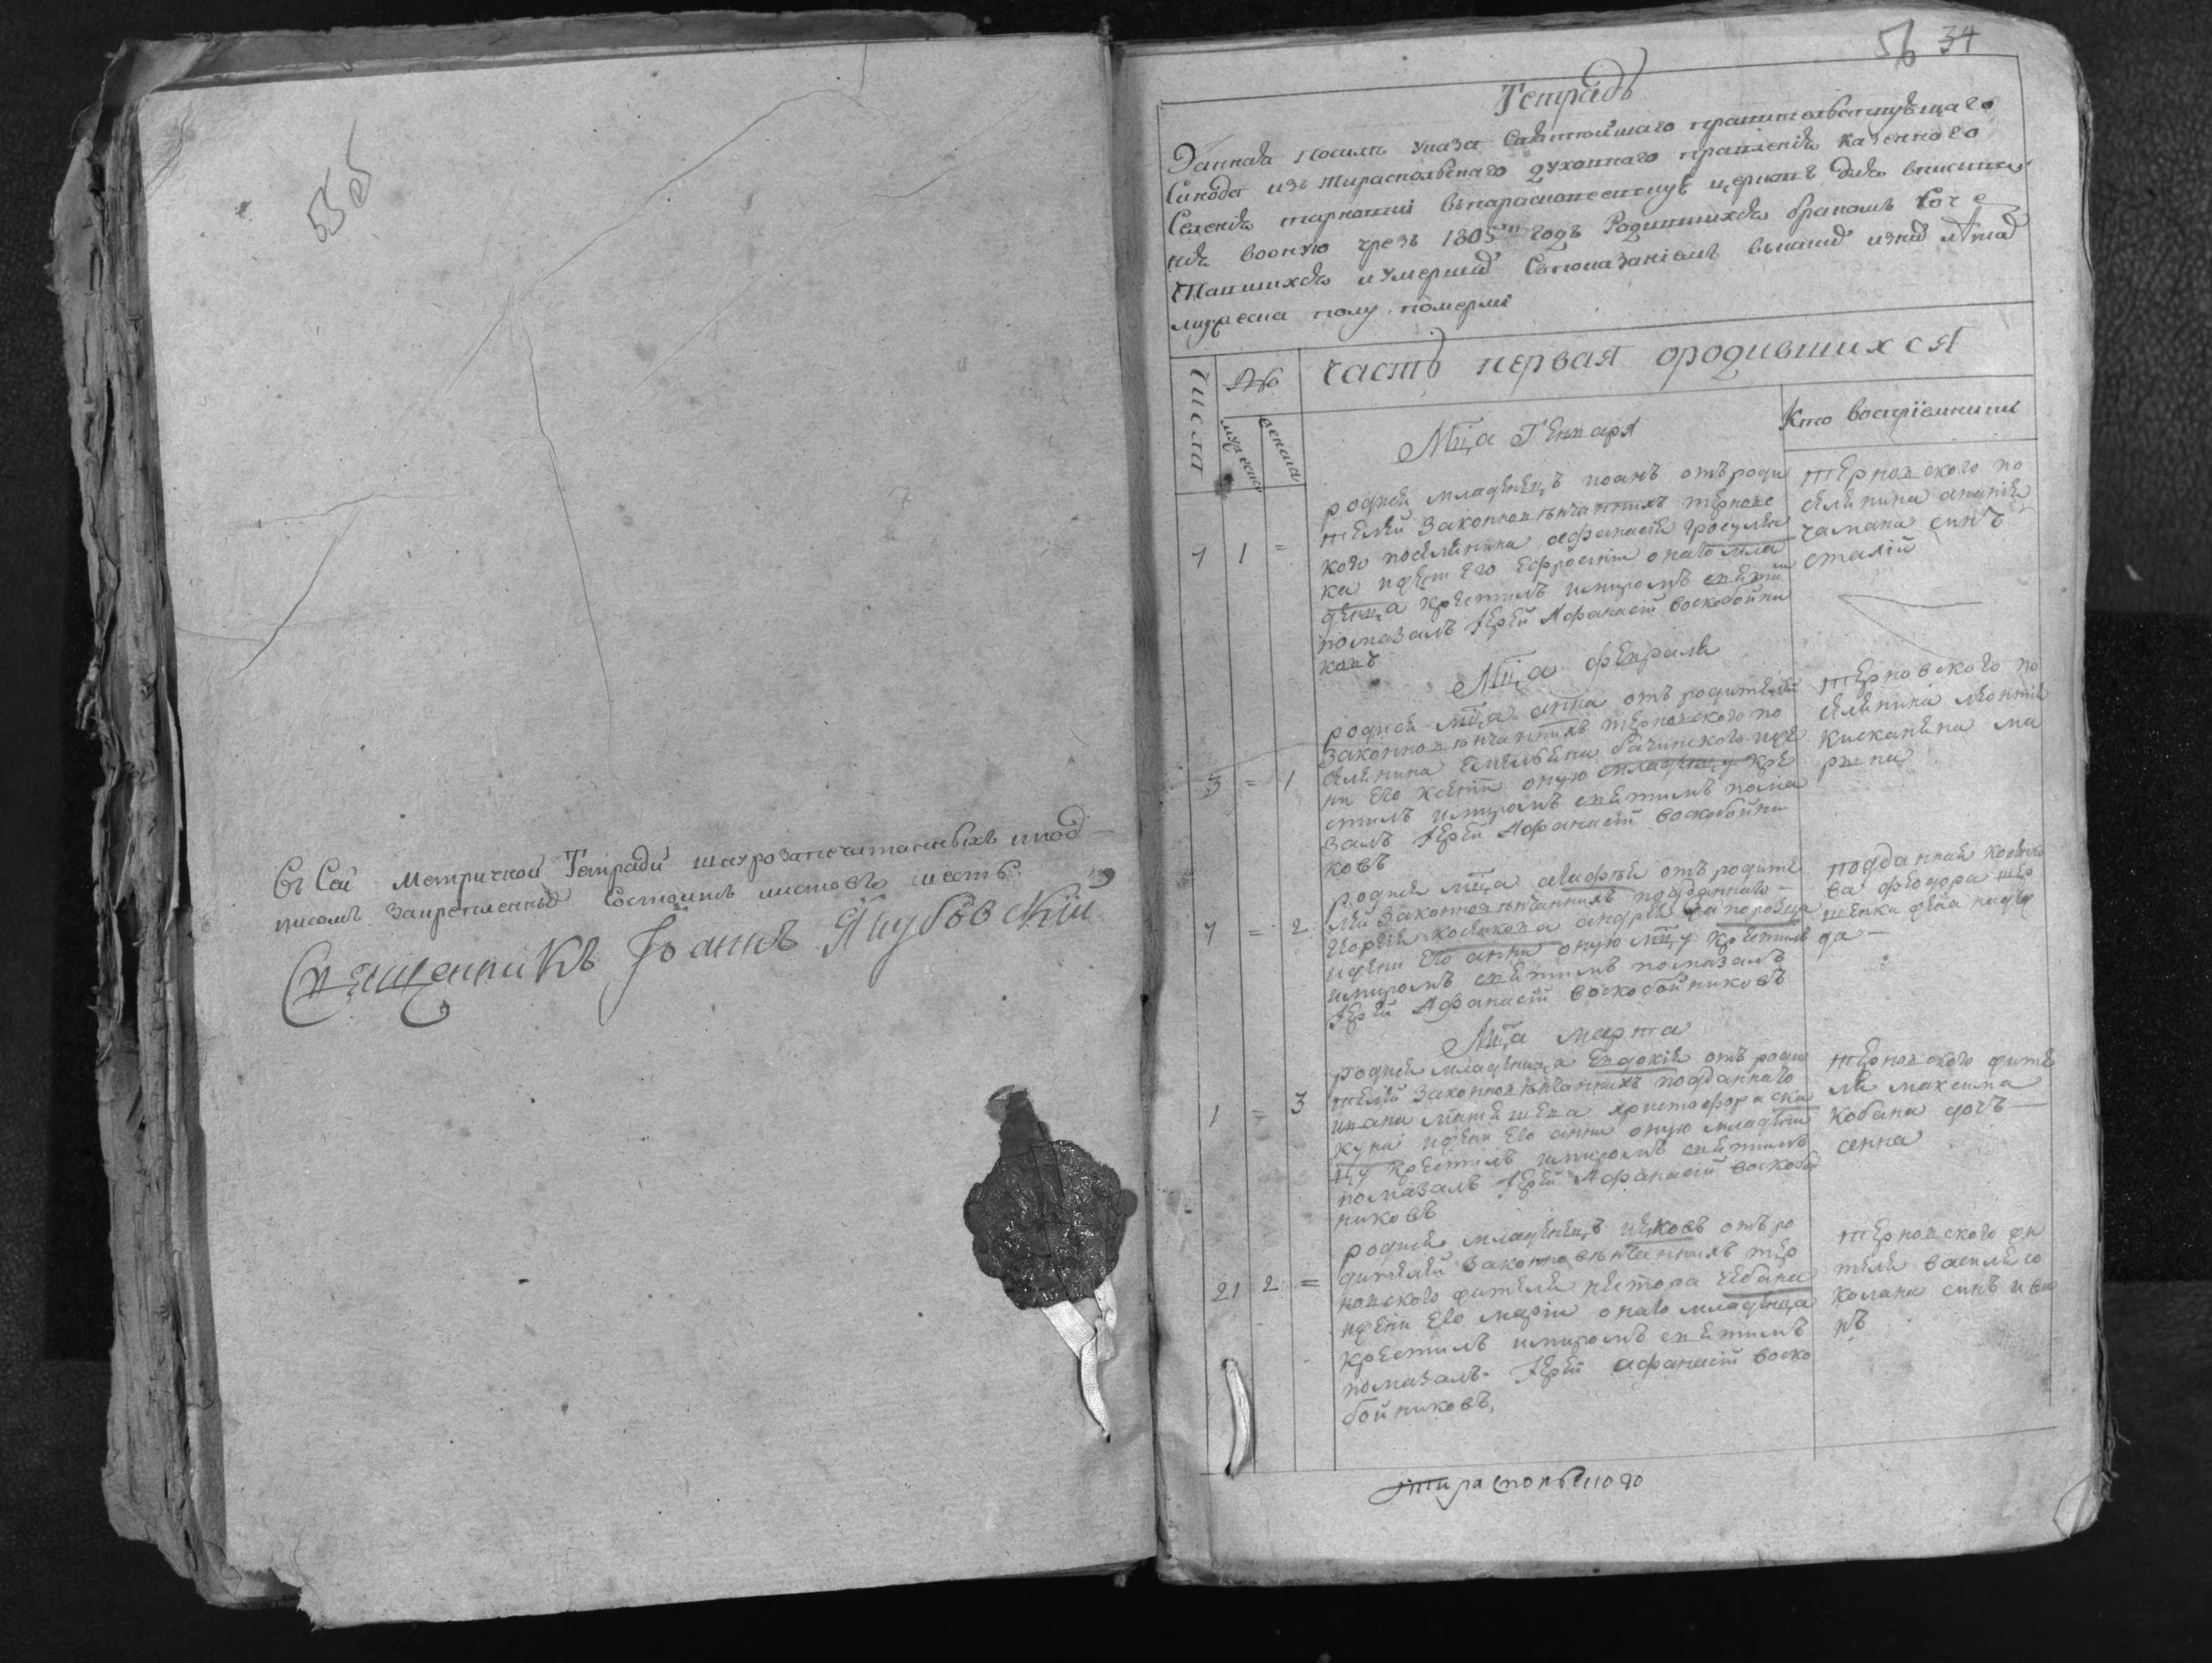 55 об
Въ Сей Метричной Тетради шнурозапечатанныхъ и под-
писомъ Закрепленныхъ Состоитъ листовъ шесть
Священникъ Іоаннъ Якубовскій
56 34
Тетрадь
Данная Посилѣ указа Святейшаго правителствующаго
Синода изъ Тираспольскаго духовнаго правленія Казенного
Селенія терновки въ параскевескую церковь для вписыва
нія вооную чрезъ 1805й годъ Родившихся бракомъ Соче
тавшихся и умерших Спо показаніемъ
мужеска полу
Числа
№
мужеска
женска
Часть первая ородившихся
Кто восприемники
Мца Генваря
1
1
=
родися младенецъ иоанъ отъ роди
телей законновѣнчанныхъ тѣрновс
кого поселянина афанасія гросуля
ка ижены Его Ефросиніи онаго мла
денца крестилъ имиромъ святимъ
помазалъ Іерей Афанасій воскобойни
ковъ
тѣрновского по
селянина ананія
чамана синъ
сталій
Мца февраля
3
=
1
родися мца анна отъ родителей
законновѣнчаннихъ тѣрновского по
селянина Емельяна Рачинского иже
ни Его Ксении оную младеницу кре
стилъ имиромъ святимъ пома
залъ Іерей Афанасій воскобойни
ковъ
тѣрновского по
селянина леонтія
кисканена ма
рина
7
=
2
родися мца агафія отъ родите
лей законновѣнчаннихъ подданнаго
георгія косякова андрея запорозца
ижени Его анни оную мцу крестилъ
имиромъ святимъ помазалъ
Іерей Афанасій воскобойниковъ
подданная косяко
ва феодора
шенки жена
да
Мца марта
1
=
3
родися младеница Евдокія отъ роди
телей законновѣнчаннихъ подданнаго
ивана христофора ска
куна ижени Его анни оную младени
цу крестилъ имиромъ святимъ
помазалъ Іерей Афанасій воскобой
никовъ
тѣрновского жите
ля максима
кобана дочъ
сенна
21
2
=
родися младенецъ иаковъ отъ ро
дителей законновѣнчаннихъ тѣр
новского жителя нестора чебана
ижени Его маріи онаго младенца
крестилъ имиромъ святимъ
помазалъ Іерей афанасій воско
бойниковъ,
тѣрновского жи
теля василія со
комана синъ ива
нъ
тираспольского